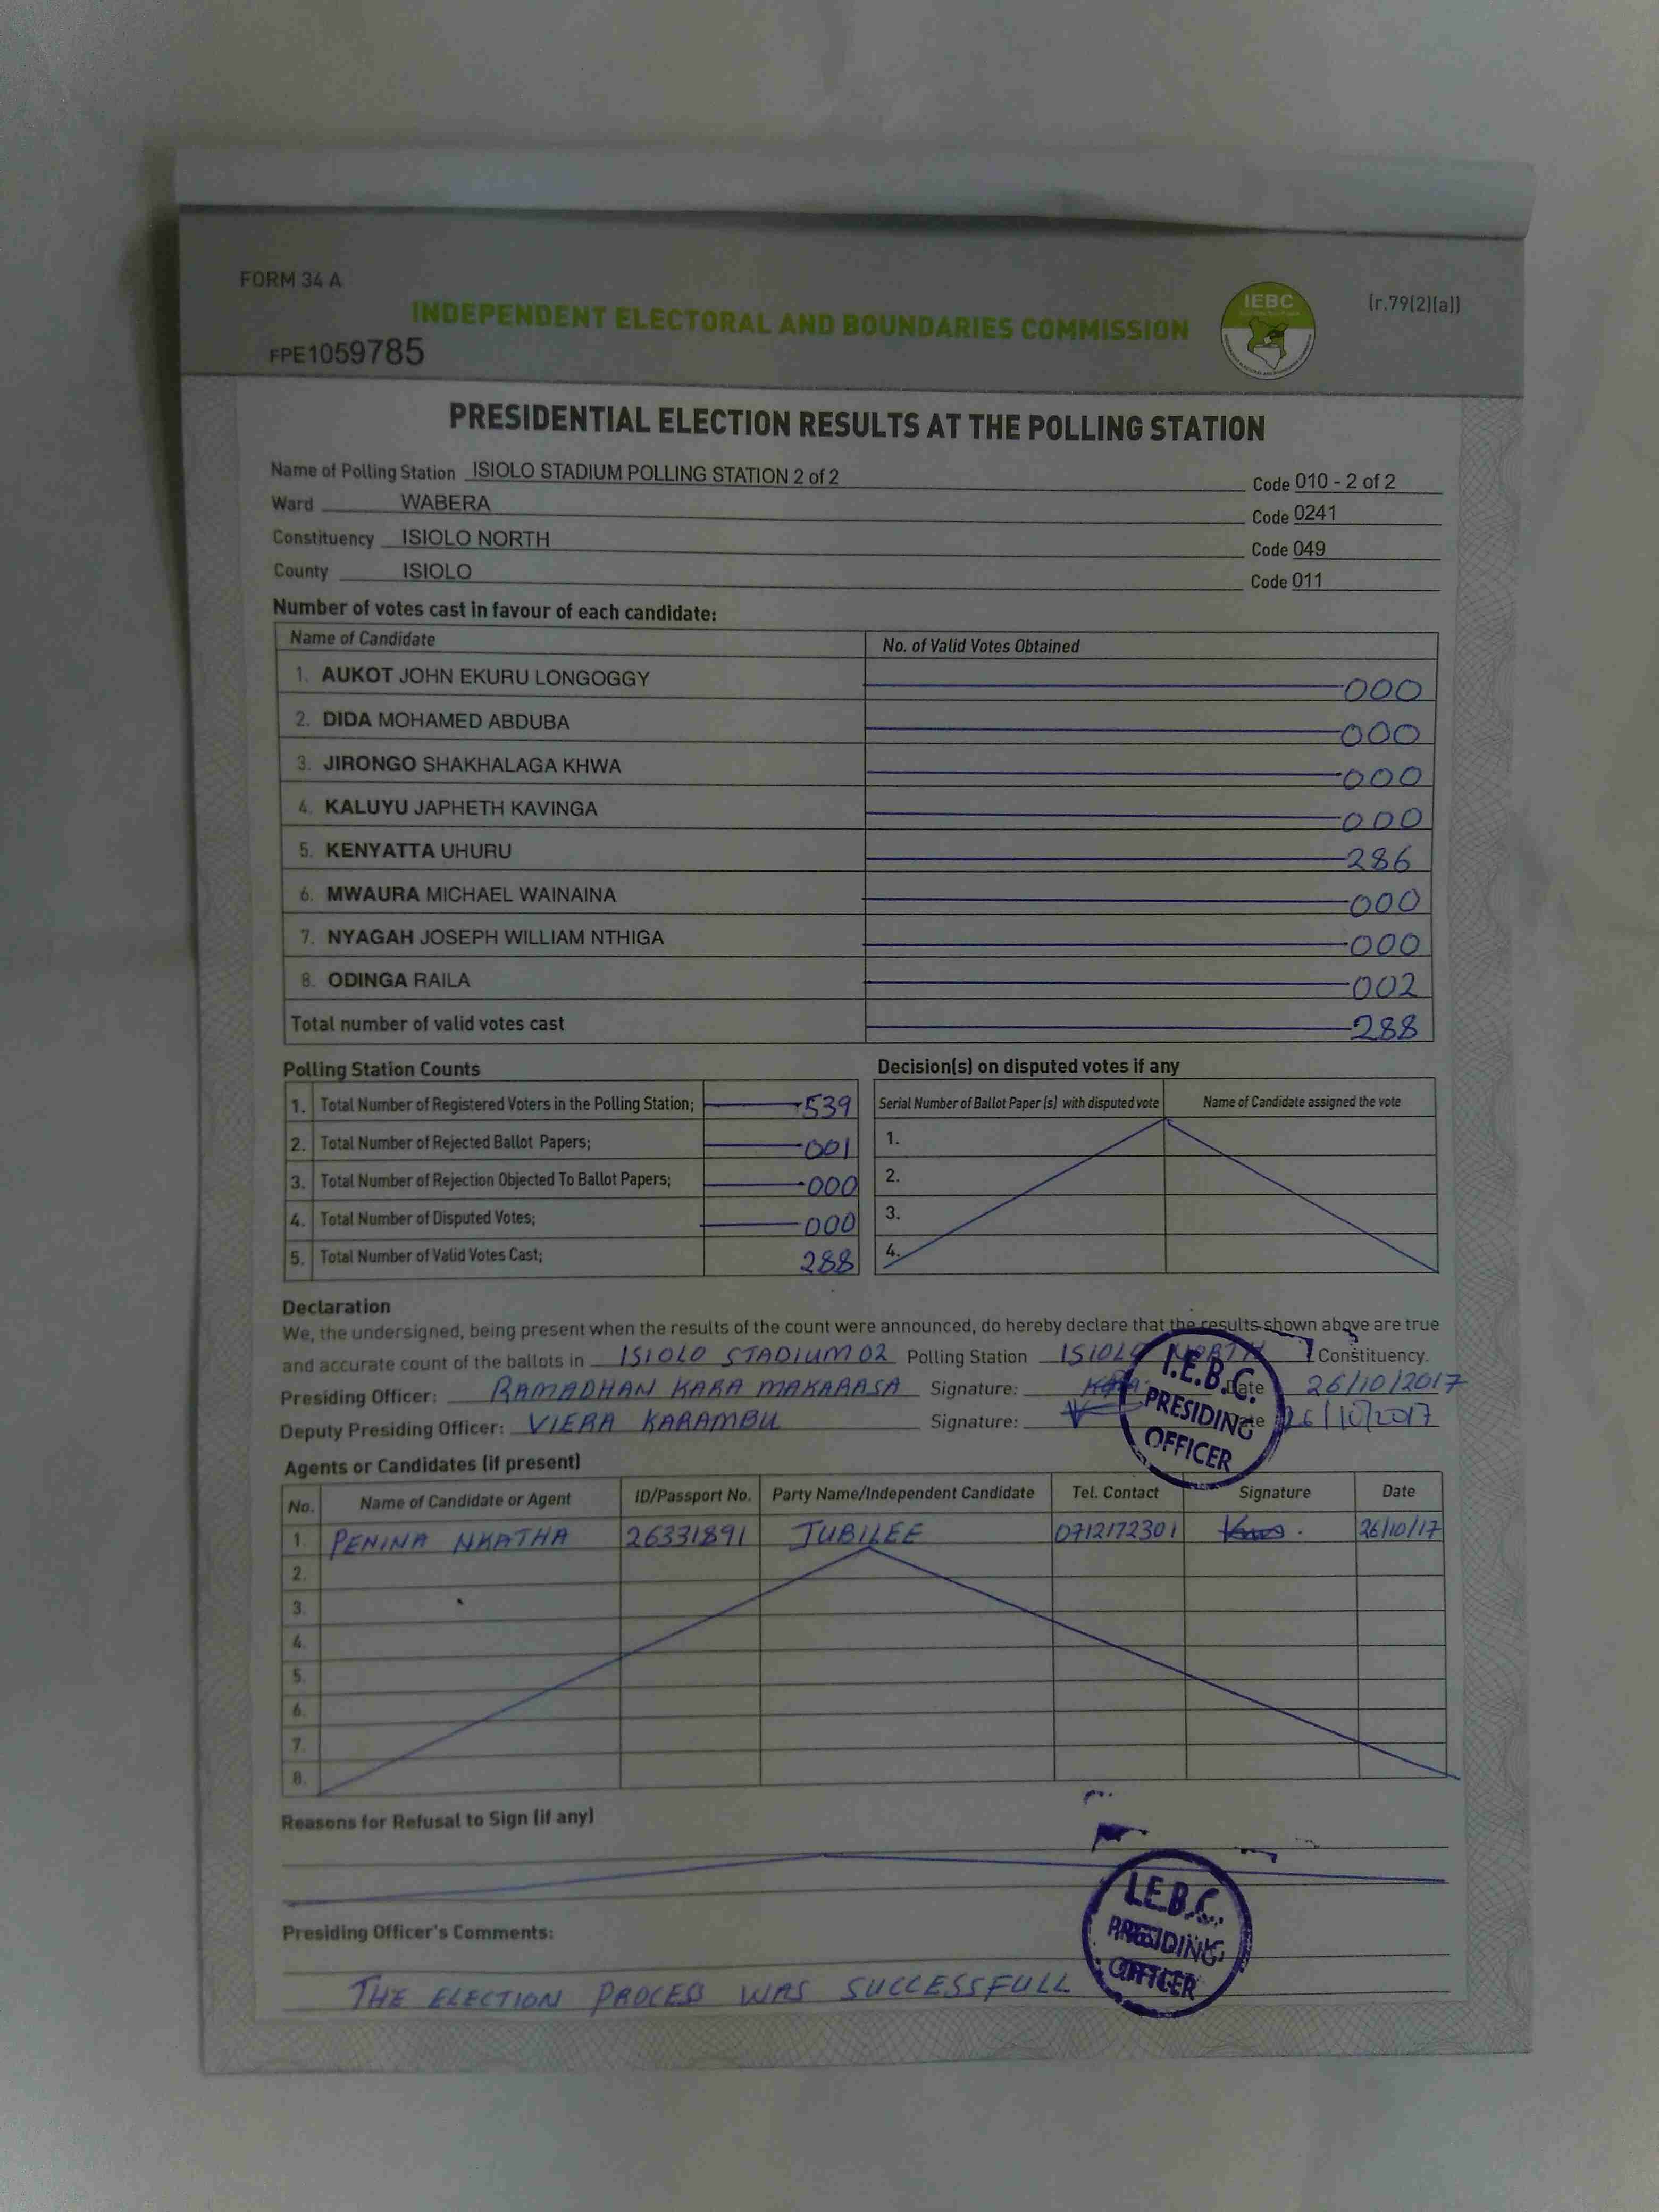 FORM 34 A
(r.79(2)(a))
INDEPENDENT ELECTORAL AND BOUNDARIES COMMISSION
IEBC
FPE1059785
PRESIDENTIAL ELECTION RESULTS AT THE POLLING STATION
Name of Polling Station ISIOLO STADIUM POLLING STATION 2 of 2 Code 010 - 2 of 2
Ward WABERA Code 0241
Constituency ISIOLO NORTH Code 049
County ISIOLO Code 011
Number of votes cast in favour of each candidate:
Name of Candidate No. of Valid Votes Obtained
1. AUKOT JOHN EKURU LONGOGGY 000
2. DIDA MOHAMED ABDUBA 000
3. JIRONGO SHAKHALAGA KHWA 000
4. KALUYU JAPHETH KAVINGA 000
5. KENYATTA UHURU 286
6. MWAURA MICHAEL WAINAINA 000
7. NYAGAH JOSEPH WILLIAM NTHIGA 000
8. ODINGA RAILA 002
Total number of valid votes cast 288
Polling Station Counts
1. Total Number of Registered Voters in the Polling Station; 539
2. Total Number of Rejected Ballot Papers; 001
3. Total Number of Rejection Objected To Ballot Papers; 000
4. Total Number of Disputed Votes; 000
5. Total Number of Valid Votes Cast; 288
Decision(s) on disputed votes if any
Serial Number of Ballot Paper (s) with disputed vote Name of Candidate assigned the vote
1.
2.
3.
4.
Declaration
We, the undersigned, being present when the results of the count were announced, do hereby declare that the results shown above are true
and accurate count of the ballots in ISIOLO STADIUM 02 Polling Station ISIOLO NORTH Constituency.
Presiding Officer: RAMADHAN KARA MAKARASA Signature: Date 26/10/2017
Deputy Presiding Officer: VIERA KARAMBU Signature: Date 26/10/2017
I.E.B.C.
PRESIDING
OFFICER
Agents or Candidates (if present)
No. Name of Candidate or Agent ID/Passport No. Party Name/Independent Candidate Tel. Contact Signature Date
1. PENINA NKATHA 26331891 JUBILEE 0712172301 26/10/17
2.
3.
4.
5.
6.
7.
8.
Reasons for Refusal to Sign (if any)
Presiding Officer's Comments:
THE ELECTION PROCESS WAS SUCCESSFULL
I.E.B.C.
PRESIDING
OFFICER